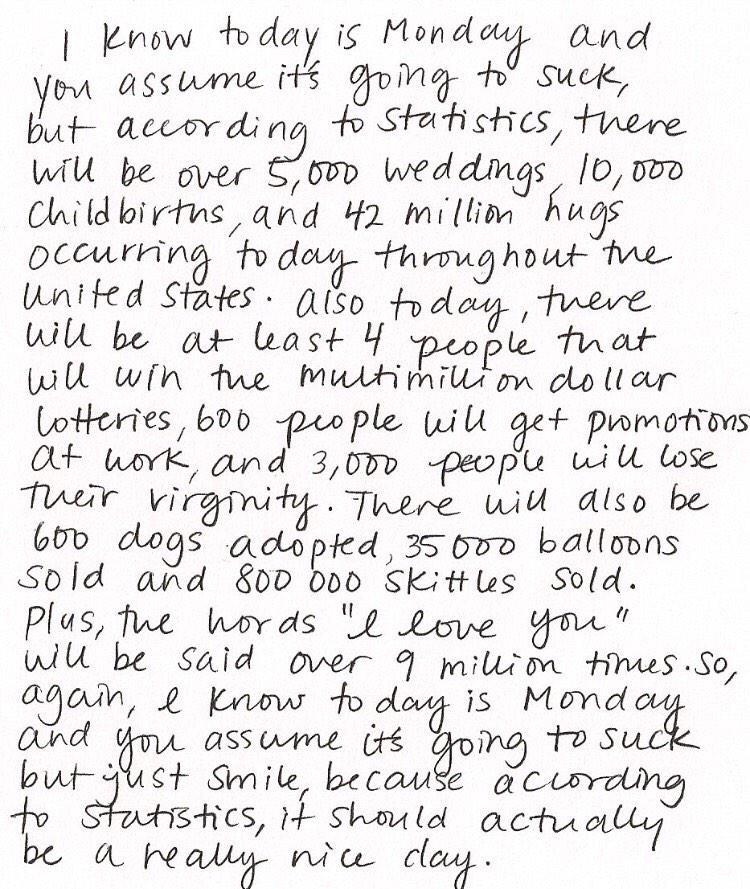 I know today is Monday and
you assume it's going to suck,
but according to statistics, there
will be over 5,000 weddings, 10,000
childbirths, and 42 million hugs
occurring today throughout the
United States. Also today, there
will be at least 4 people that
will win the multimillion dollar
lotteries, 600 people will get promotions
at work, and 3,000 people will lose
their virginity. There will also be
600 dogs adopted, 35 000 balloons
sold and 800 000 skittles sold.
Plus, the words "I love you"
will be said over 9 million times. So,
again, I know today is Monday
and you assume it's going to suck
but just smile, because according
to statistics, it should actually
be a really nice day.